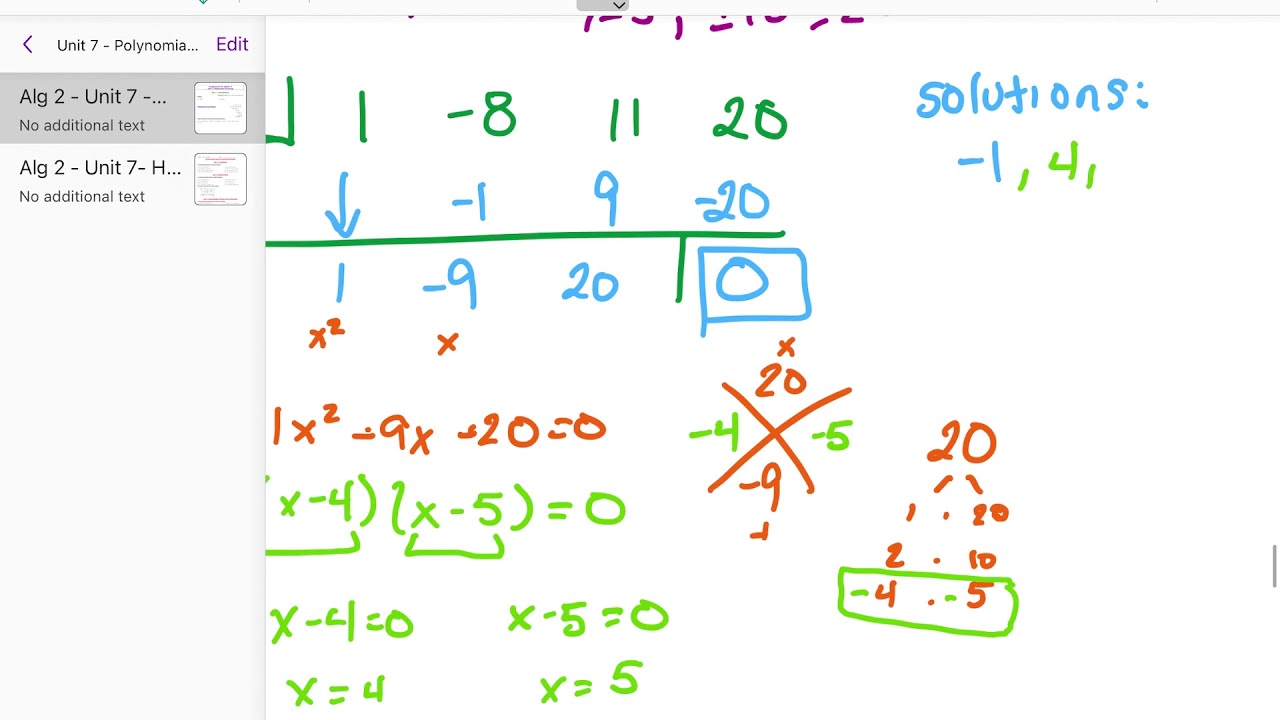 Unit 7 - Polynomia... Edit
Alg 2 - Unit 7 -...
No additional text
Alg 2 - Unit 7- H...
No additional text
1 -8 11 20
-1 9 -20
1 -9 20 0
x² x
1x² -9x -20=0
(x-4)(x-5)=0
x-4=0 x-5=0
x=4 x=5
x
20
-4 -5
-9
+
20
1 . 20
2 . 10
-4 . -5
solutions:
-1, 4,